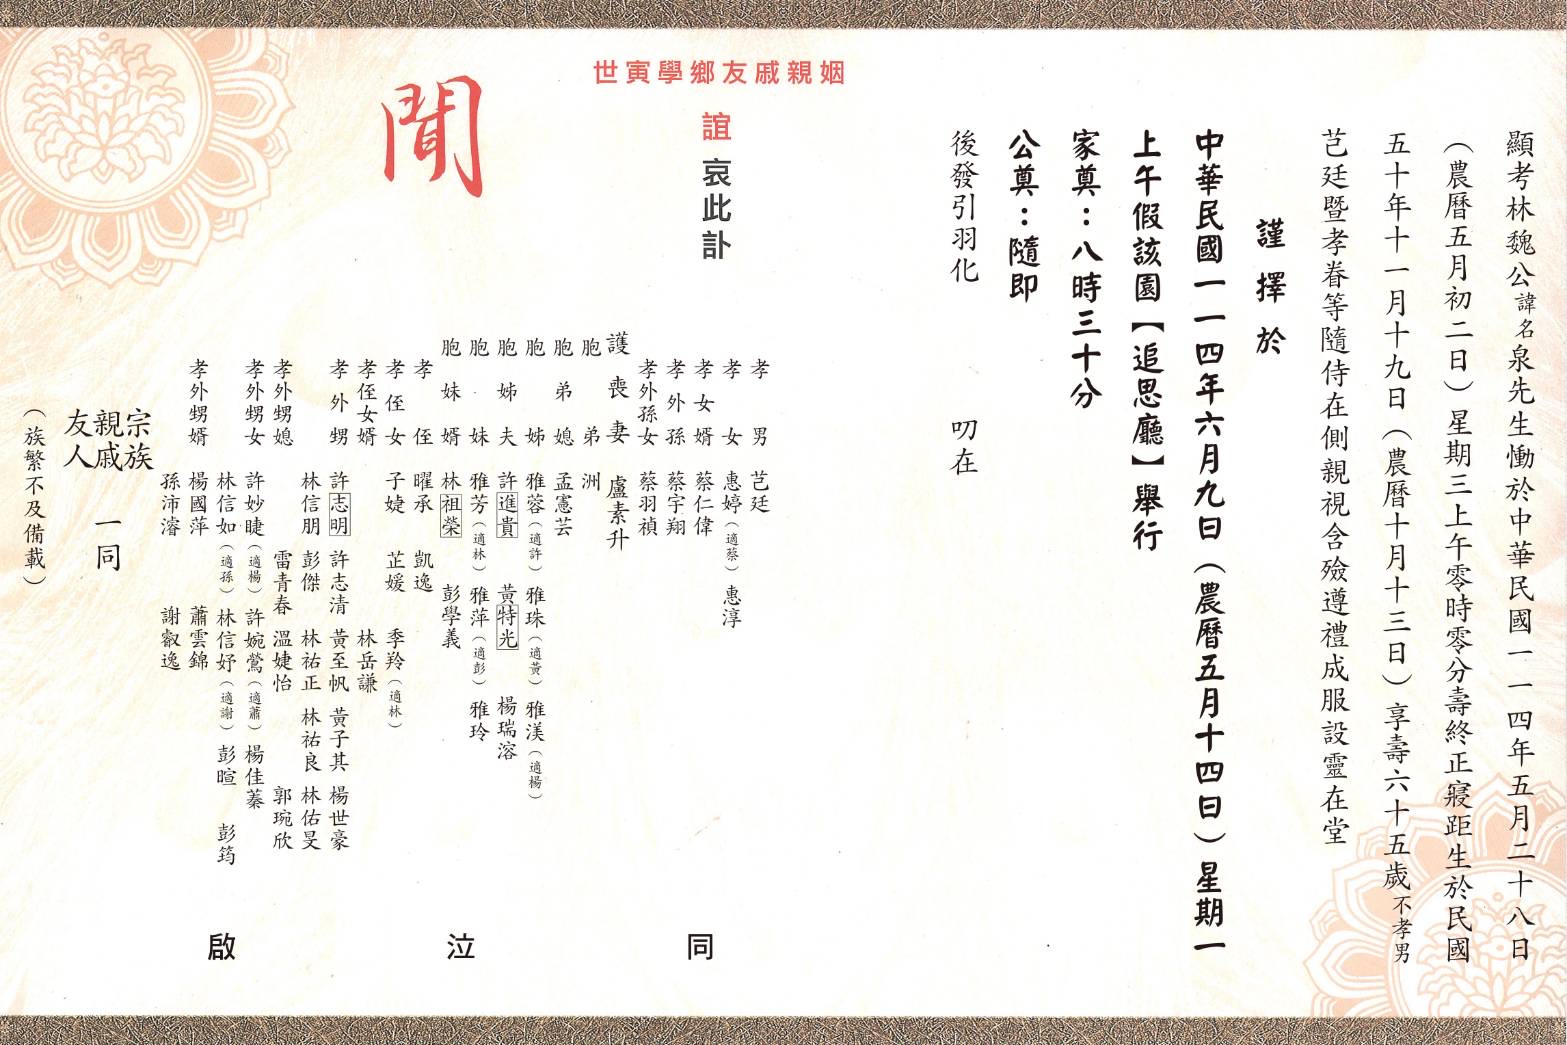 顯考林魏公諱名泉先生慟於中華民國一一四年五月二十八日
（農曆五月初二日）星期三上午零時零分壽終正寢距生於民國
五十年十一月十九日（農曆十月十三日）享壽六十五歲不孝男
芑廷暨孝眷等隨侍在側親視含殮遵禮成服設靈在堂
謹擇於
中華民國一一四年六月九日（農曆五月十四日）星期一
上午假該園【追思廳】舉行
家奠：八時三十分
公奠：隨即
後發引羽化 叨在
姻親戚友鄉學寅世
誼 哀此訃
聞
孝男 芑廷
孝女 惠婷（適蔡） 惠淳
孝女婿 蔡仁偉
孝外孫 蔡宇翔
孝外孫女 蔡羽禎
護喪妻 盧素升
胞弟 洲
胞弟媳 孟憲芸
胞姊 雅蓉（適許） 雅珠（適黃） 雅渼（適楊）
胞姊夫 許進貴 黃特光 楊瑞溶
胞妹 雅芳（適林） 雅萍（適彭） 雅玲
胞妹婿 林祖榮 彭學義
孝侄 曜承 凱逸
孝侄女 子婕 芷媛 季羚（適林）
孝侄女婿 林岳謙
孝外甥 許志明 許志清 黃至帆 黃子其 楊世豪
林信朋 彭傑 林祐正 林祐良 林佑旻
孝外甥媳 雷青春 溫婕怡 郭琬欣
孝外甥女 許妙睫（適楊） 許婉鶯（適蕭） 楊佳蓁
林信如（適孫） 林信妤（適謝） 彭暄 彭筠
孝外甥婿 楊國萍 蕭雲錦
孫沛濬 謝叡逸
同泣啟
宗族
親戚 一同
友人
（族繁不及備載）